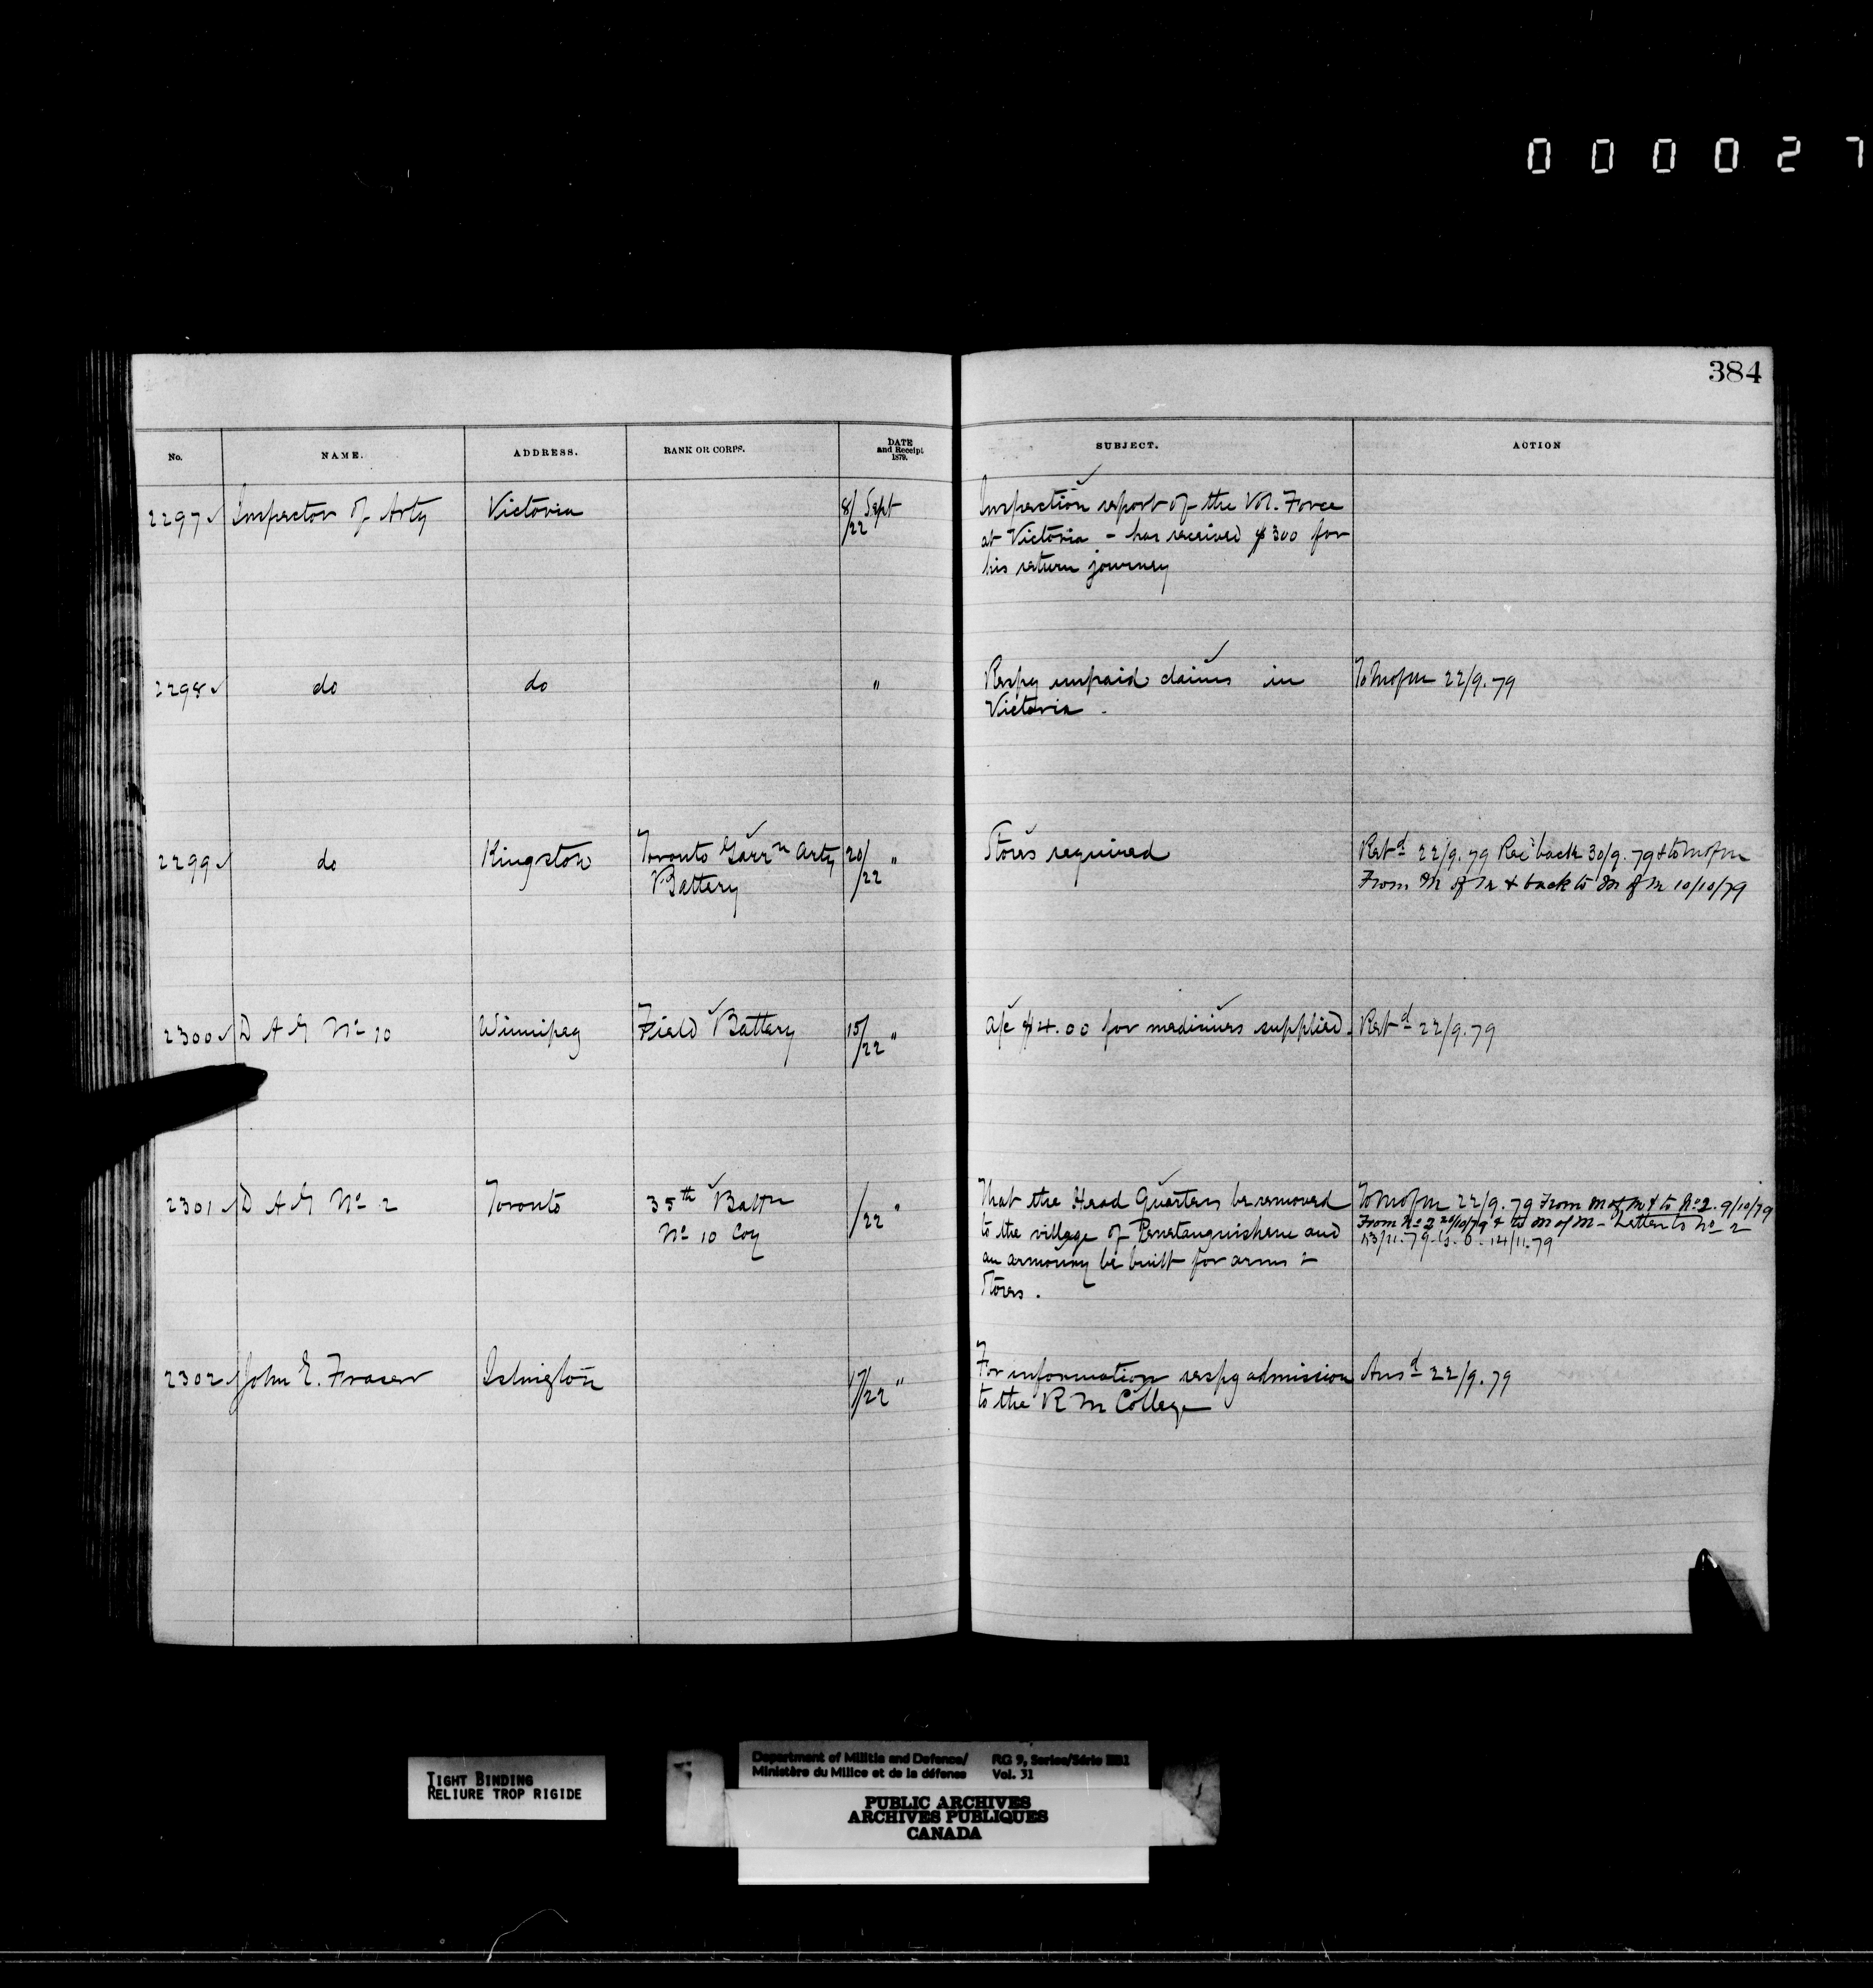 000027
384
No. NAME. ADDRESS. RANK OR CORPS. DATE and Receipt 1879. SUBJECT. ACTION
2297 Inspector of Arty Victoria 8/22 Sept Inspection report of the Vol. Force
at Victoria - has received $300 for
his return journey
2298 do do " Respg unpaid claims in To M of M 22/9.79
Victoria.
2299 do Kingston Toronto Garrn Arty 20/22 " Stores required Retd 22/9.79 Recd back 30/9.79 & to M of M
Battery From M of M & back to M of M 10/10/79
2300 D A G No 10 Winnipeg Field Battery 15/22 " a/c $4.00 for medicines supplied. Retd 22/9.79
2301 D A G No 2 Toronto 35th Battn /22 " That the Head Quarters be removed To M of M 22/9.79 From M of M & to No 2. 9/10/79
No 10 Coy to the village of Penetanguishene and From No 2 20/10/79 & to M of M - Letter to No 2
an armoury be built for arms & 13/11.79 G.O. 14/11.79
Stores.
2302 John E. Fraser Islington 17/22 " For information respg admission Ansd 22/9.79
to the R M College
TIGHT BINDING
RELIURE TROP RIGIDE
Department of Militia and Defence/ RG 9, Series/Série
Ministère du Milice et de la défense Vol. 31
PUBLIC ARCHIVES
ARCHIVES PUBLIQUES
CANADA